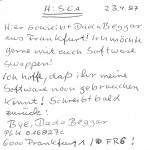 H:SCA 23.4.87
Hier schreibt Dada Beggar
aus Frankfurt! Ich möchte
gerne mit euch Software
swappen!
Ich hoffe, daß ihr meine
Software noch gebrauchen
könnt! Schreibt bald
zurück!
Bye, Dada Beggar
PLK
6000 Frankfurt 1 FRG!